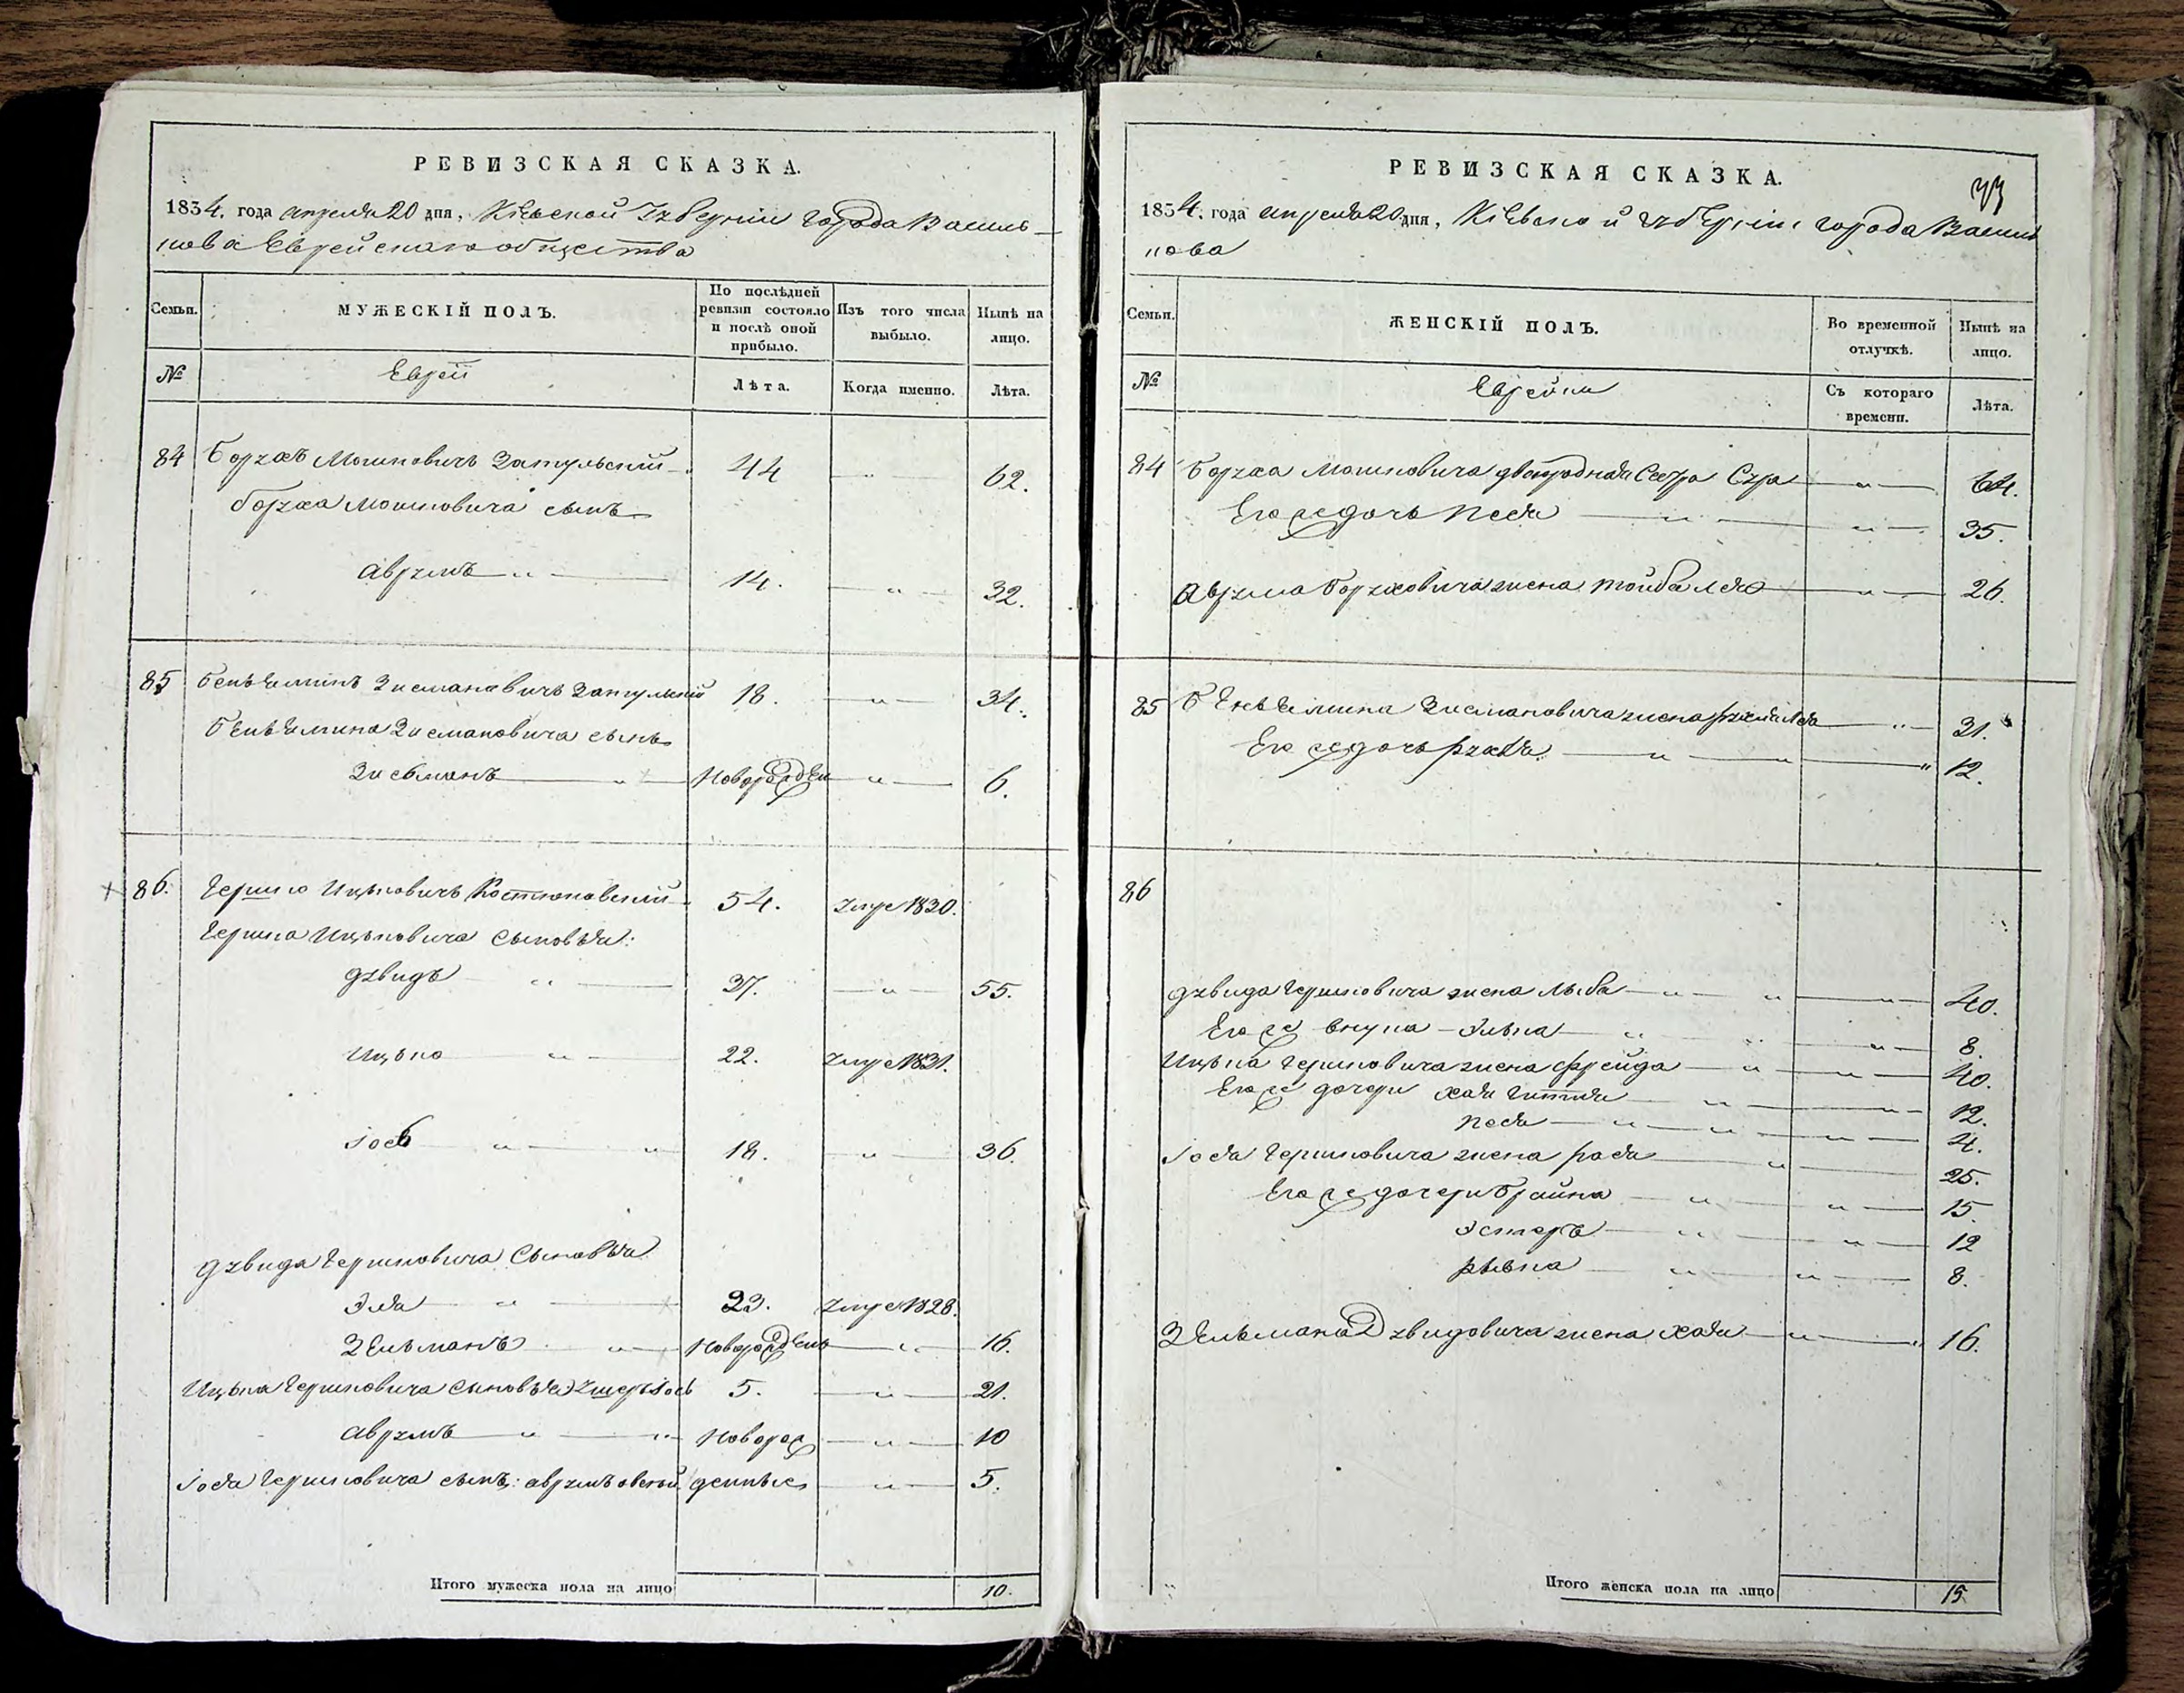 РЕВИЗСКАЯ СКАЗКА.
1834. года апреля 20 дня, Кіевской Губерніи города Василь-
кова Еврейскаго общества
Семьи.
МУЖЕСКІЙ ПОЛЪ.
По послѣдней ревизіи состояло и послѣ оной прибыло.
Изъ того числа выбыло.
Нынѣ на лицо.
№
Еврей
Лѣта.
Когда именно.
Лѣта.
84 Борухъ Мошковичъ Затульскій 44 — " — 62.
Боруха Мошковича сынъ
Аврумъ — " — 14. — " — 32.
85 Беньяминъ Зисмановичъ Затульскій 18. — " — 34.
Беньямина Зисмановича сынъ
Зисьманъ — " — Новорожден — " — 6.
86. Гершко Ицьковичъ Костюковскій 54. умре 1830.
Гершка Ицьковича сыновья:
Дувидъ — " — 37. — " — 55.
Ицько — " — 22. умре 1831.
Іось — " — " 18. — " — 36.
Дувида Гершковича сыновья
Эля — " — 23. умре 1828.
Зельманъ — " — Новорожден — " — 16.
Ицька Гершковича сыновья Іось 5. — " — 21.
Аврумъ — " — " Новорож — " — 10
Іося Гершковича сынъ: Аврумъ Овсей денные — " — 5.
Итого мужеска пола на лицо 10.
РЕВИЗСКАЯ СКАЗКА.
1834. года апреля 20 дня, Кіевской губерніи города Василь
кова
Семьи.
ЖЕНСКІЙ ПОЛЪ.
Во временной отлучкѣ.
Нынѣ на лицо.
№
Еврейки
Съ котораго времени.
Лѣта.
84 Боруха Мошковича двоюродная Сестра Сура — " — 64.
Его же дочь Песя — " — " — 35.
Аврума Боруховича жена Тойба Лея — " — 26.
85 Беньямина Зисмановича жена Рухля Лея — " — 31.
Его же дочь Рухля — " — " — " 12.
86
Дувида Гершковича жена Лыба — " — " — " — 40.
Его же внука — Элька — " — " — " — 8.
Ицька Гершковича жена Фрейда — " — " — 40.
Его же дочери Хая Гиття — " — " — 12.
Песя — " — " — " — 4.
Іося Гершковича жена Рася — " — 25.
Его же дочери Брайна — " — " — 15.
Эстеръ — " — " — 12
Рывка — " — " — 8.
Зельмана Дувидовича жена Хая — " — " 16.
Итого женска пола на лицо 15